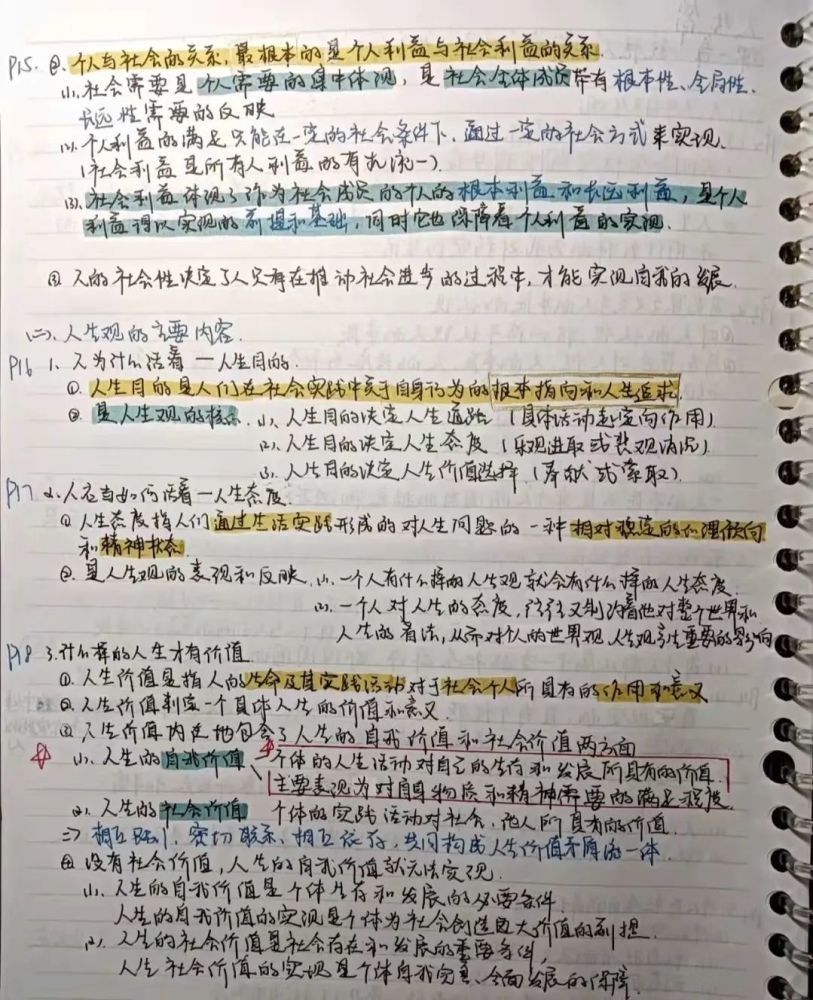 P15. ②. 个人与社会的关系，最根本的是个人利益与社会利益的关系.
(1). 社会需要是个人需要的集中体现，是社会全体成员带有根本性、全局性、
长远性需要的反映
(2). 个人利益的满足只能在一定的社会条件下、通过一定的社会方式来实现.
(社会利益是所有人利益的有机统一).
(3). 社会利益体现了作为社会成员的个人的根本利益和长远利益，是个人
利益得以实现的前提和基础，同时它也保障着个人利益的实现.
③ 人的社会性决定了人只有在推动社会进步的过程中，才能实现自我的发展.
(二). 人生观的主要内容.
P16 1. 人为什么活着—人生目的.
①. 人生目的是人们在社会实践中关于自身行为的根本指向和人生追求.
②. 是人生观的核心. (1). 人生目的决定人生道路 (具体活动起定向作用)
(2). 人生目的决定人生态度 (乐观进取或悲观消沉)
(3). 人生目的决定人生价值选择 (奉献或索取).
P17 2. 人应当如何活着—人生态度.
① 人生态度指人们通过生活实践形成的对人生问题的一种相对稳定的心理倾向
和精神状态.
②. 是人生观的表现和反映. (1). 一个人有什么样的人生观就会有什么样的人生态度.
(2). 一个人对人生的态度，往往又制约着他对整个世界和
人生的看法，从而对个人的世界观、人生观产生重要的影响
P18 3. 什么样的人生才有价值
①. 人生价值是指人的生命及其实践活动对于社会个人所具有的作用和意义
②. 人生价值判定一个具体人生的价值和意义.
③. 人生价值内在地包含了人生的自我价值和社会价值两方面
(1). 人生的自我价值 个体的人生活动对自己的生存和发展所具有的价值.
主要表现为对自身物质和精神需要的满足程度.
(2). 人生的社会价值 个体的实践活动对社会、他人所具有的价值.
⇒ 相互区别、密切联系、相互依存，共同构成人生价值矛盾统一体.
④ 没有社会价值，人生的自我价值就无法实现.
(1). 人生的自我价值是个体生存和发展的必要条件
人生的自我价值的实现是个体为社会创造更大价值的前提.
(2). 人生的社会价值是社会存在和发展的重要条件，
人生社会价值的实现是个体自我完善、全面发展的保障.